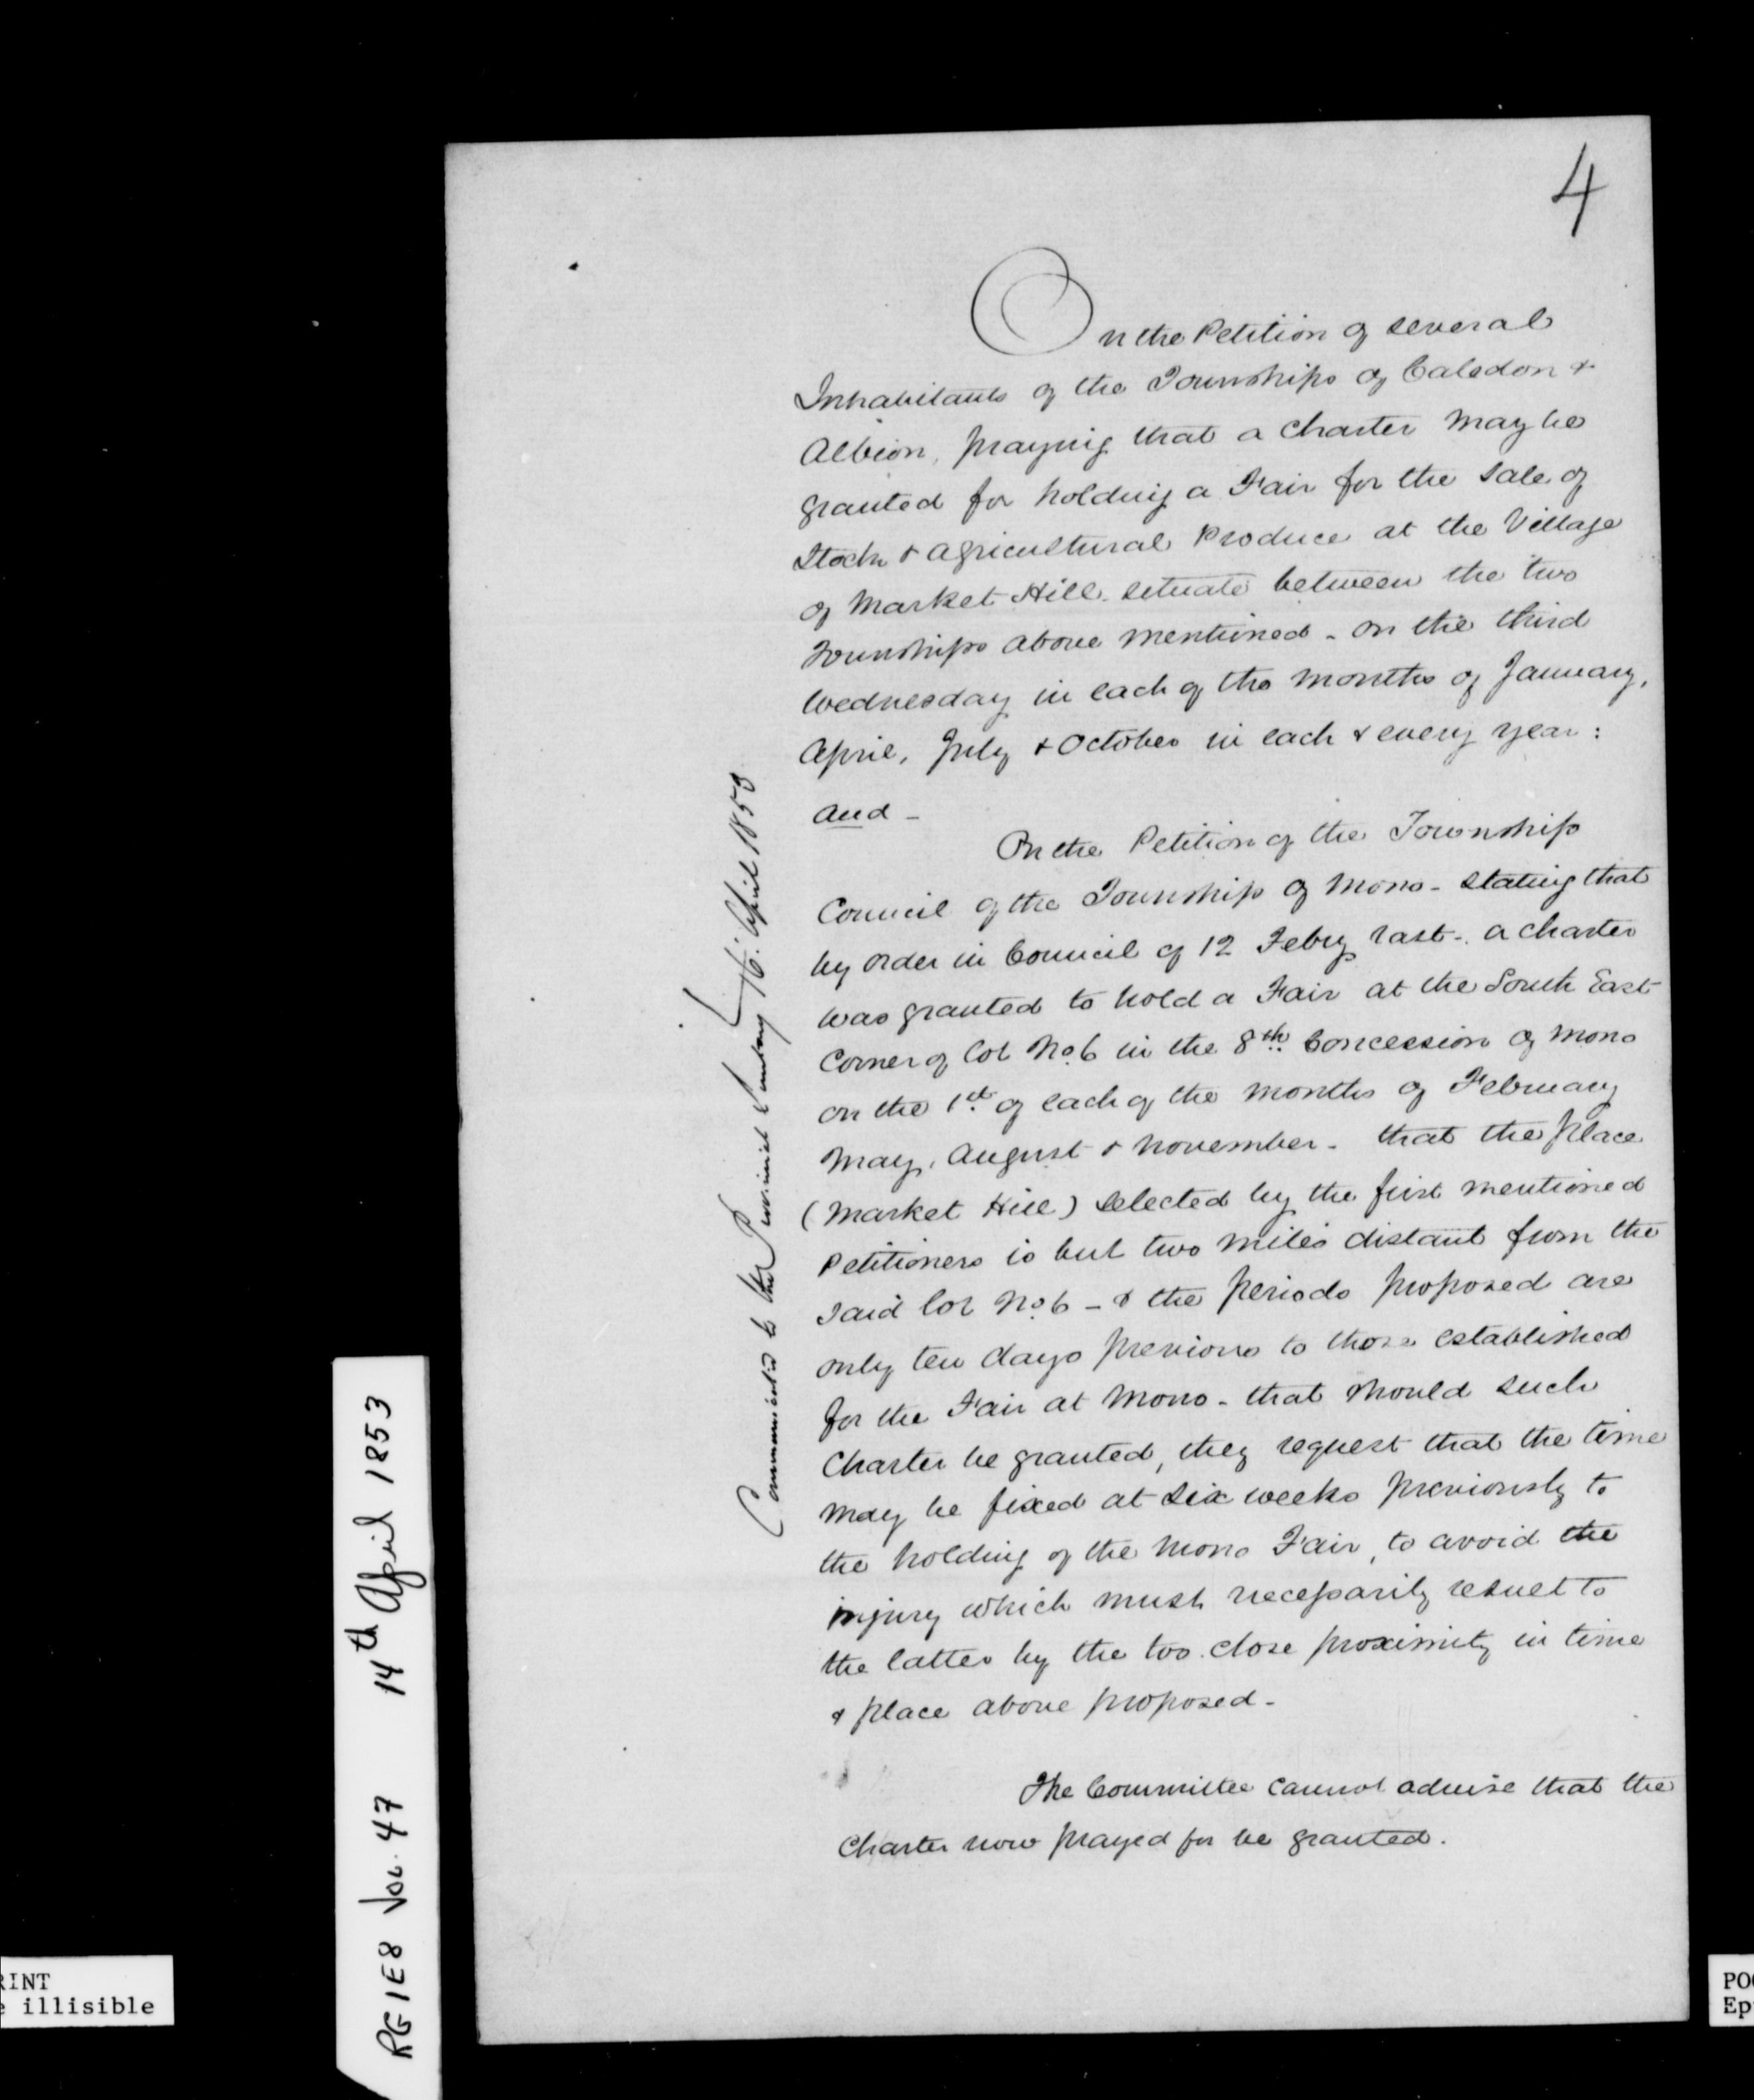 4
On the Petition of several
Inhabitants of the Townships of Caledon &
Albion, praying that a Charter may be
granted for holding a Fair for the Sale of
Stock & Agricultural Produce at the Village
of Market Hill situate between the two
Townships above mentioned - on the third
Wednesday in each of the months of January,
April, July & October in each & every year :
and -
On the Petition of the Township
Council of the Township of Mono - stating that
by order in Council of 12 Feby last - a Charter
was granted to hold a Fair at the South East
Corner of Lot No. 6 in the 8th Concession of Mono
on the 1st of each of the months of February
May, August & November - that the place
(Market Hill) selected by the first mentioned
Petitioners is but two miles distant from the
said Lot No. 6 - & the periods proposed are
only ten days previous to those established
for the Fair at Mono - that should such
Charter be granted, they request that the time
may be fixed at six weeks previously to
the holding of the Mono Fair, to avoid the
injury which must necessarily result to
the latter by the too close proximity in time
& place above proposed -
The Committee cannot advise that the
Charter now prayed for be granted.
Communicated to the Provincial Secretary 16: April 1853
RG1E8 Vol. 47 14th April 1853
RINT
e illisible
PO
Ep